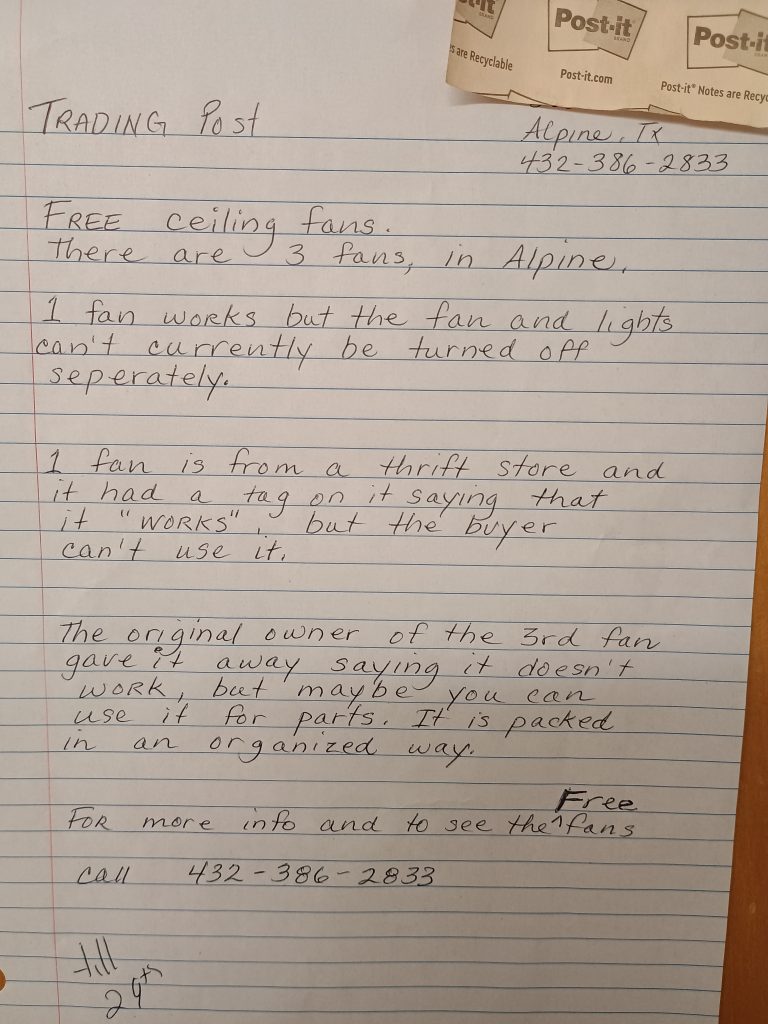 Post-it
BRAND
Post-it
BRAND
s are Recyclable
Post-it.com
Post-it® Notes are Recyc
TRADING Post
Alpine, TX
432-386-2833
FREE ceiling fans.
There are 3 fans, in Alpine.
1 fan works but the fan and lights
can't currently be turned off
seperately.
1 fan is from a thrift store and
it had a tag on it saying that
it "WORKS", but the buyer
can't use it.
The original owner of the 3rd fan
gave it away saying it doesn't
work, but maybe you can
use it for parts. It is packed
in an organized way.
For more info and to see the ^Free fans
call 432-386-2833
till
29th